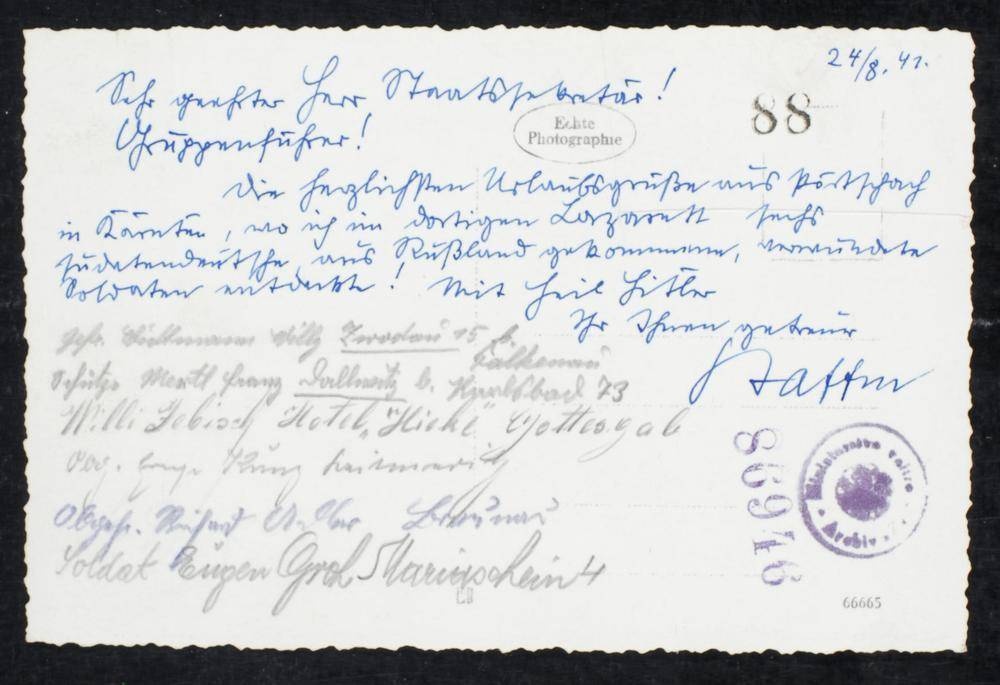 24/8. 41.
Sehr geehrter Herr Staatssekretär!
Gruppenführer!
88
Echte
Photographie
Die herzlichsten Urlaubsgrüße aus Pörtschach
in Kärnten, wo ich im dortigen Lazarett sechs
sudetendeutsche, aus Rußland gekommene, verwundete
Soldaten entdeckte! Mit Heil Hitler
Ihr Ihnen getreuer
Gefr. Willy Zwodau 15 b.
Falkenau
Schütze Franz Dallwitz b. Karlsbad 73
Willi Hotel „Hieke" Gottesgab
Obgefr. Richard Adler Braunau
Soldat Eugen Marienschein 4
86946
Ministerstvo vnitra
Archiv
66665